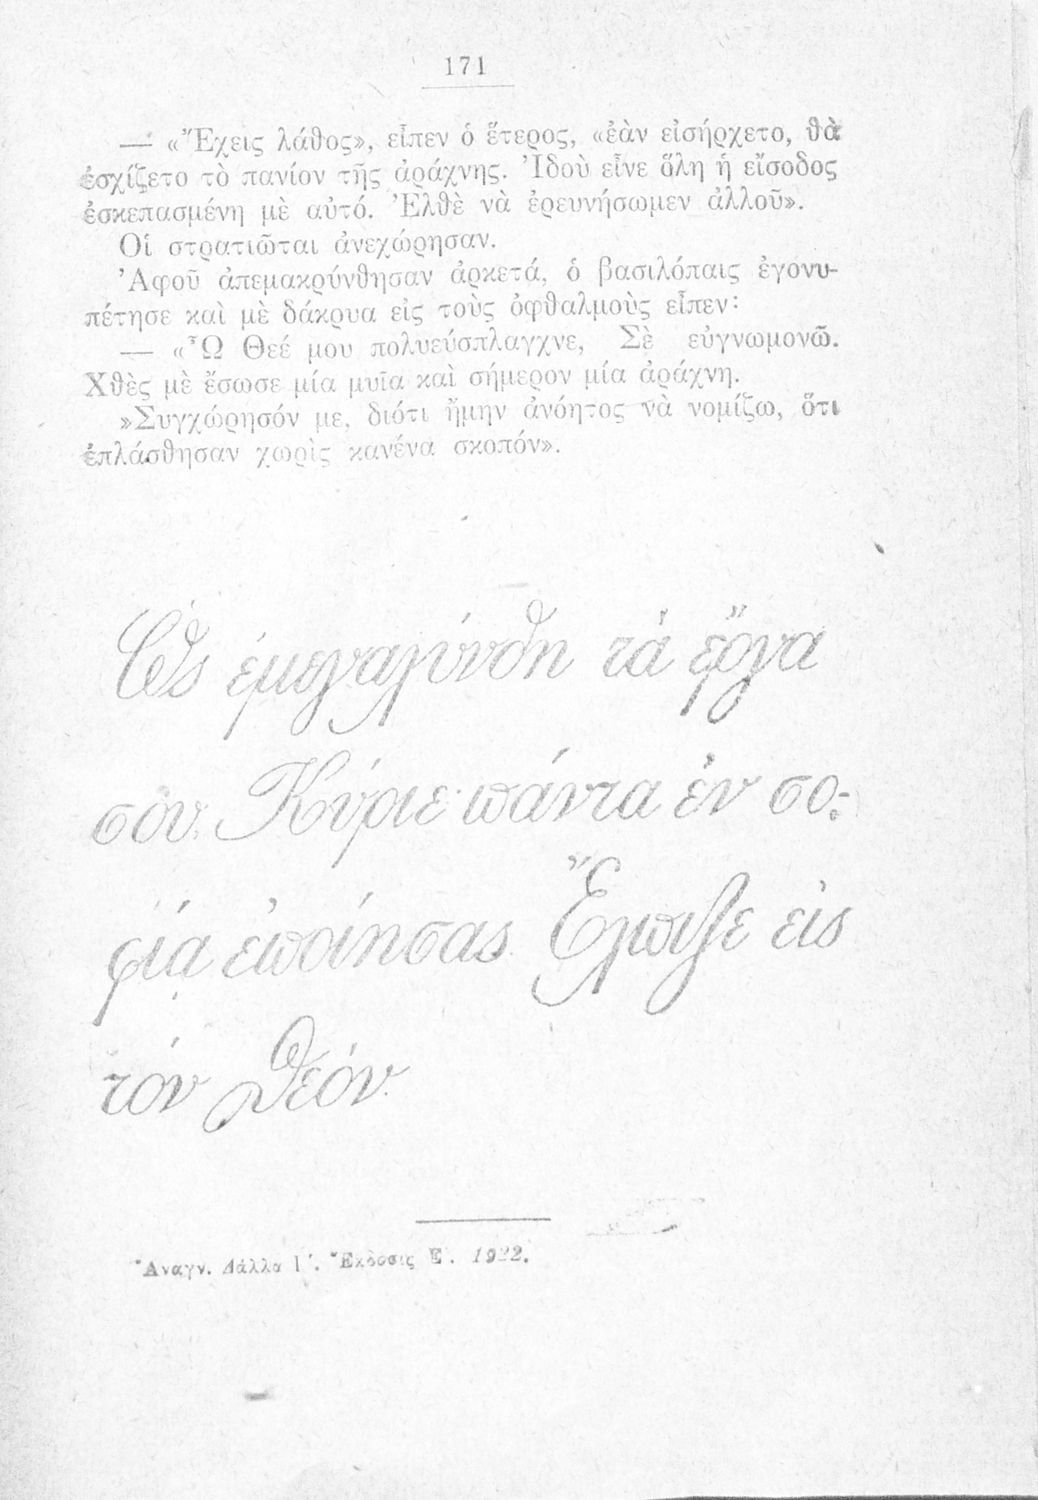 171
— «Ἔχεις λάθος», εἶπεν ὁ ἕτερος, «ἐὰν εἰσήρχετο, θὰ
ἐσχίζετο τὸ πανίον τῆς ἀράχνης. Ἰδοὺ εἶνε ὅλη ἡ εἴσοδος
ἐσκεπασμένη μὲ αὐτό. Ἐλθὲ νὰ ἐρευνήσωμεν ἀλλοῦ».
Οἱ στρατιῶται ἀνεχώρησαν.
Ἀφοῦ ἀπεμακρύνθησαν ἀρκετά, ὁ βασιλόπαις ἐγονυ-
πέτησε καὶ μὲ δάκρυα εἰς τοὺς ὀφθαλμοὺς εἶπεν:
— «Ὦ Θεέ μου πολυεύσπλαγχνε, Σὲ εὐγνωμονῶ.
Χθὲς μὲ ἔσωσε μία μυῖα καὶ σήμερον μία ἀράχνη.
»Συγχώρησόν με, διότι ἤμην ἀνόητος νὰ νομίζω, ὅτι
ἐπλάσθησαν χωρὶς κανένα σκοπόν».
Ὡς ἐμεγαλύνθη τὰ ἔργα
σου, Κύριε πάντα ἐν σο-
φίᾳ ἐποίησας. Ἔλπιζε εἰς
τόν Θεόν.
Ἀναγν. Δάλλα Γ΄. Ἔκδοσις Ε΄. 1922.